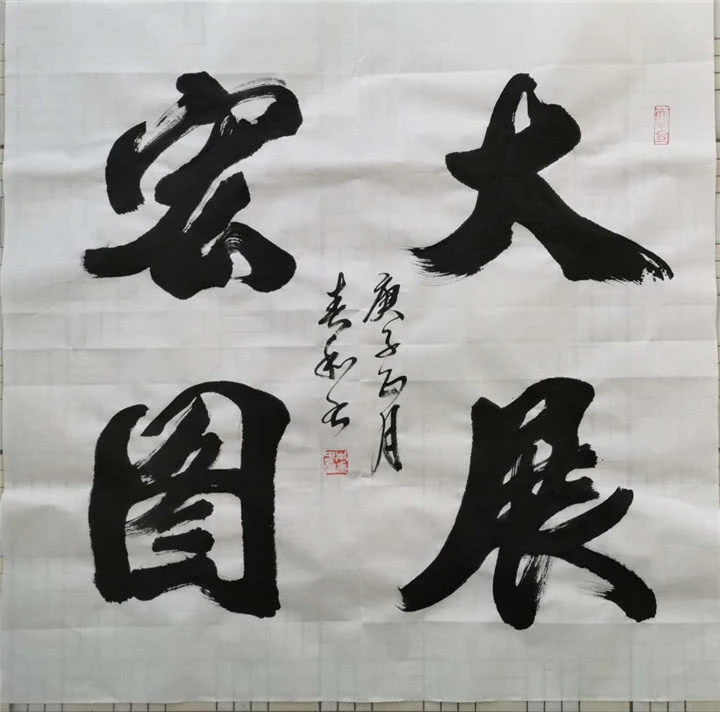 大展
宏图
庚子正月
春和书